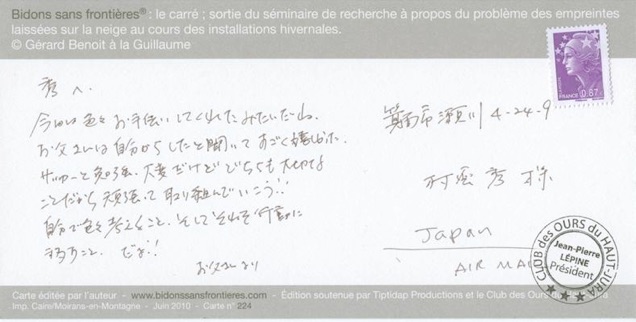 Bidons sans frontières® : le carré ; sortie du séminaire de recherche à propos du problème des empreintes
laissées sur la neige au cours des installations hivernales.
© Gérard Benoit à la Guillaume
FRANCE
0,87€
秀へ.
今日は色々お手伝いしてくれたみたいだね。
お父さんは自分からしたと聞いてすごく嬉しかった。
サッカーと勉強。大変だけどどちらも大切な
ことだから頑張って取り組んでいこう!!
自分で色々考えること。そしてそれを行動に
移すこと。だよ!!
お父さんより
箕面市瀬川 4-24-9
秀様
Japan
AIR MAIL
CLUB des OURS du HAUT-JURA
Jean-Pierre
LÉPINE
Président
Carte éditée par l'auteur - www.bidonssansfrontieres.com - Édition soutenue par Tiptidap Productions et le Club des Ours du Haut-Jura
Imp. Caire/Moirans-en-Montagne - Juin 2010 - Carte n° 224